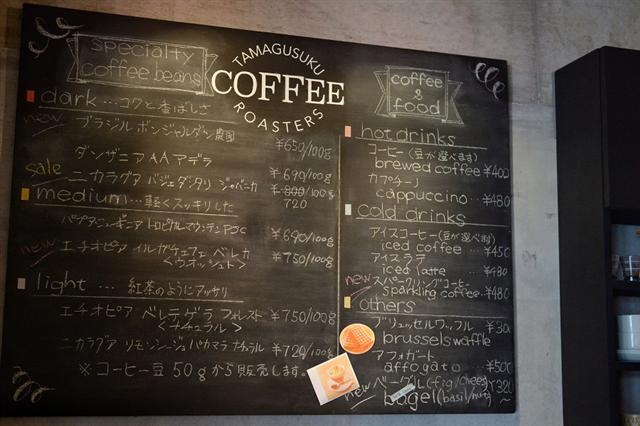 specialty
coffee beans
TAMAGUSUKU
COFFEE
ROASTERS
coffee
&
food
dark ... コクと香ばしさ
new
ブラジル ボンジャルダン農園 ¥650/100g
タンザニア AA アデラ ¥690/100g
sale
ニカラグア ジャバニカ ¥800/100g
720
medium ... 軽くスッキリした
パプアニューギニア トロピカルマウンテン ¥690/100g
new
エチオピア イルガチェフェ ベレカ ¥750/100g
<ウォッシュト>
light ... 紅茶のようにアッサリ
エチオピア ベレテゲラ フォレスト ¥750/100g
<ナチュラル>
ニカラグア リモンシージョ パカマラ ナチュラル ¥720/100g
※コーヒー豆 50gから販売します。
hot drinks
コーヒー(豆が選べます)
brewed coffee ¥400
カプチーノ
cappuccino ... ¥480
cold drinks
アイスコーヒー(豆が選べます)
iced coffee ... ¥450
アイスラテ
iced latte ... ¥480
new
スパークリングコーヒー
sparkling coffee ... ¥480
others
ブリュッセルワッフル ¥300
brussels waffle
アフォガート
affogato ¥500
new
ベーグル(fig/cheese) ¥320
bagel (basil/nut) ~